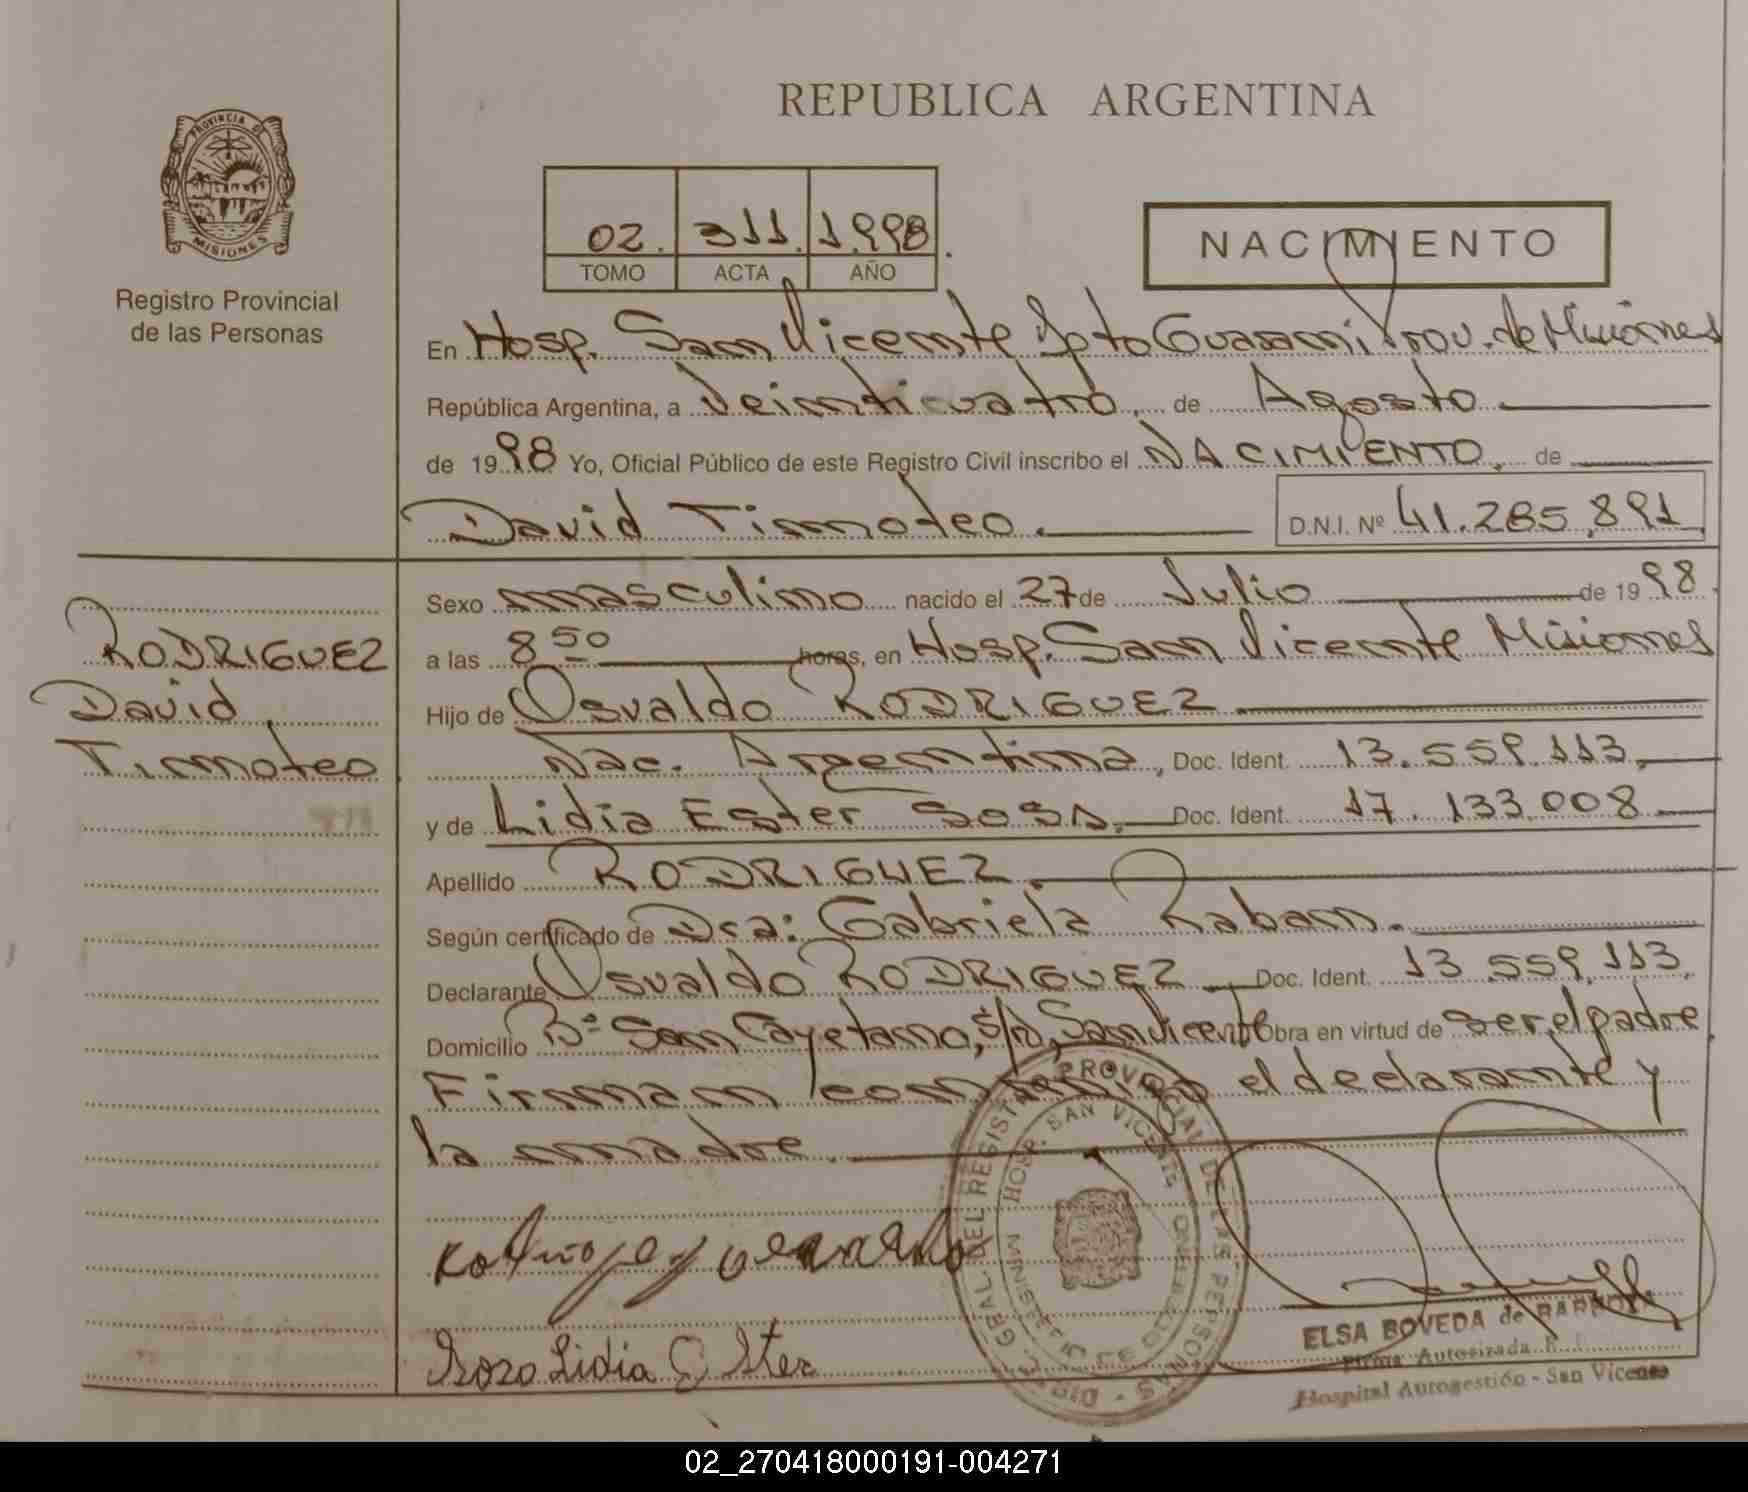 REPUBLICA ARGENTINA
PROVINCIA DE
MISIONES
Registro Provincial
de las Personas
02. 311. 1.998.
TOMO ACTA AÑO
NACIMIENTO
En Hosp. San Vicente Dpto Guarani Prov. de Misiones
República Argentina, a Veinticuatro, de Agosto
de 1998 Yo, Oficial Público de este Registro Civil inscribo el NACIMIENTO, de
David Timoteo. D.N.I. Nº 41.285.891
Sexo masculino nacido el 27 de Julio de 1998.
RODRIGUEZ
David
Timoteo.
a las 8 50 horas, en Hosp. San Vicente Misiones
Hijo de Osvaldo RODRIGUEZ
Nac. Argentina, Doc. Ident. 13.559.113,
y de Lidia Ester SOSA. Doc. Ident. 17.133.008
Apellido RODRIGUEZ.
Según certificado de Dra: Gabriela Raban.
Declarante Osvaldo RODRIGUEZ Doc. Ident. 13.559.113.
Domicilio Bº San Cayetano, s/n, San Vicente Obra en virtud de ser el padre.
Firman conmigo el declarante y
la madre.
Sosa Lidia Ester
HOSP. SAN VICENTE
ELSA BOVEDA de BARBOZA
Firma Autorizada
Hospital Autogestión - San Vicente
02_270418000191-004271